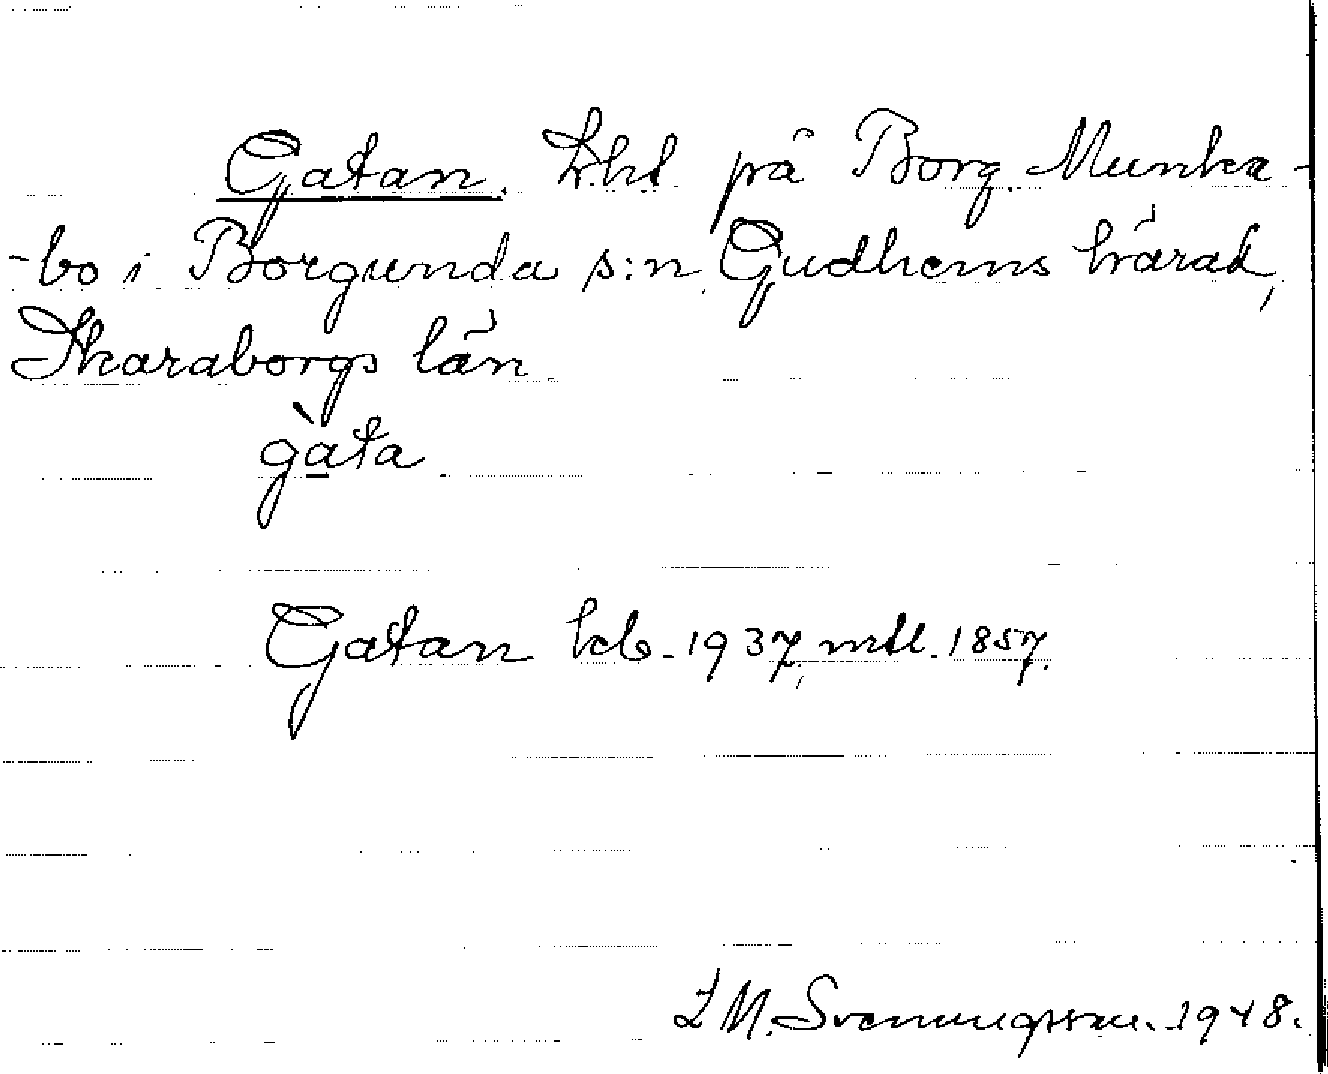 Gatan. Lht på Borg. Munka-
-bo i Borgunda s:n, Gudhems härad,
Skaraborgs län.
gàta
Gatan kb. 1937, mtl. 1857.
L M. Svenungsson. 1948.